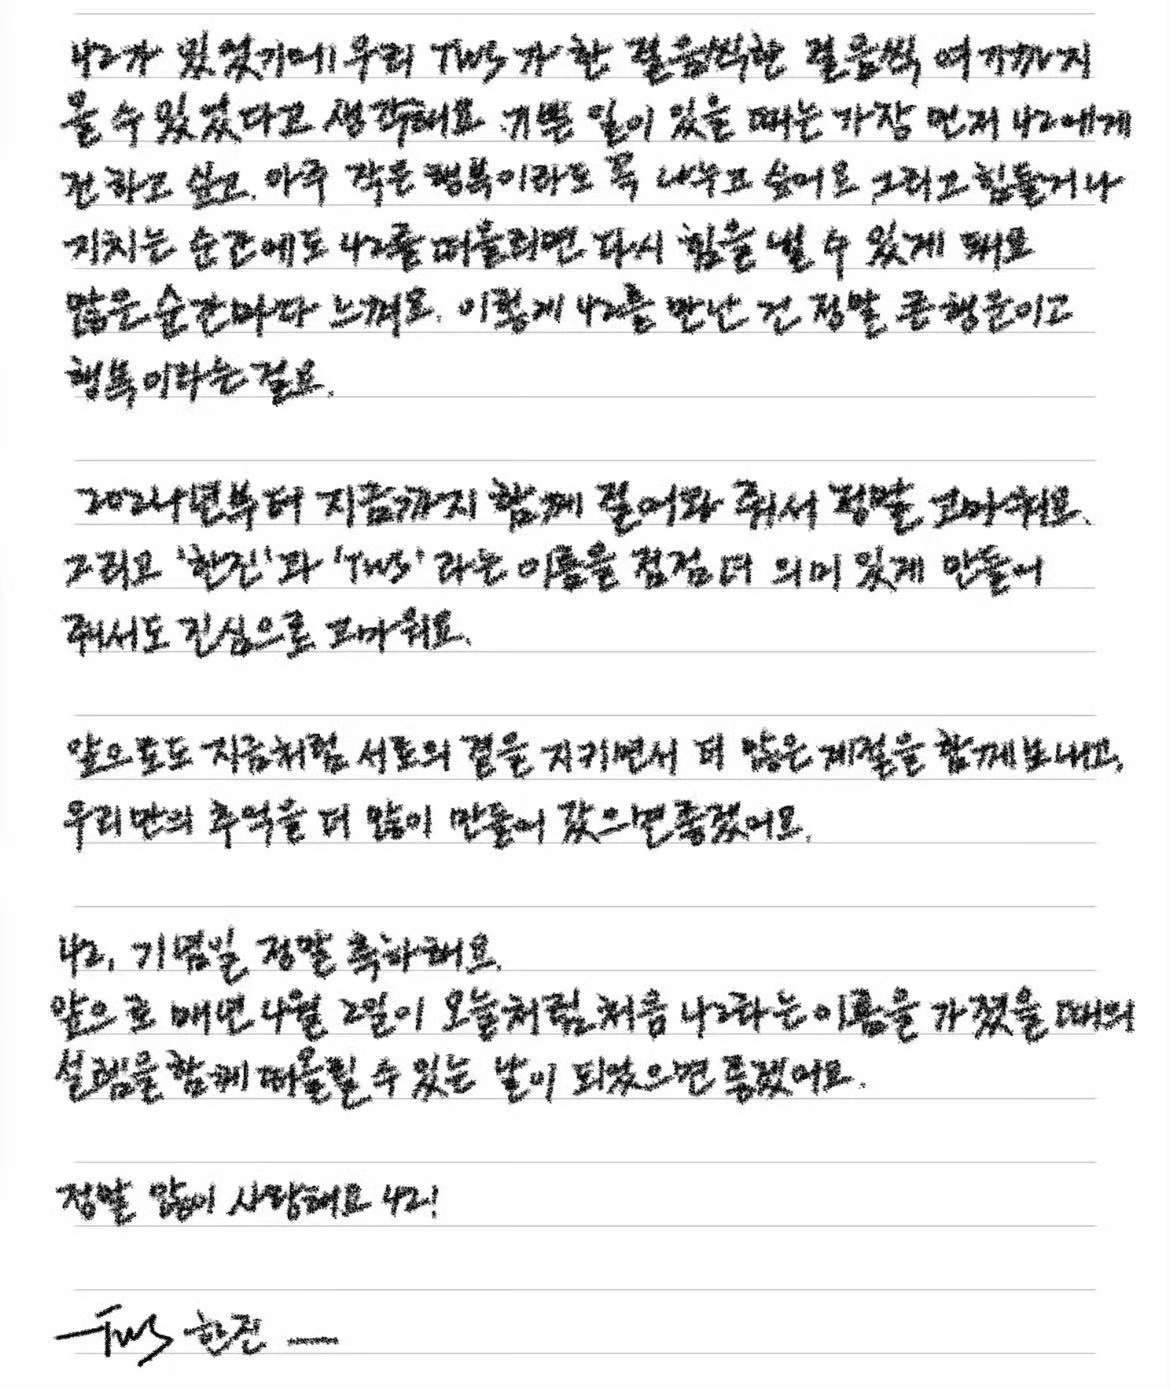 42가 있었기에 우리 TWS가 한 걸음씩 한 걸음씩 여기까지
올 수 있었다고 생각해요. 기쁜 일이 있을 때는 가장 먼저 42에게
전하고 싶고, 아주 작은 행복이라도 꼭 나누고 싶어요. 그리고 힘들거나
지치는 순간에도 42를 떠올리면 다시 힘을 낼 수 있게 돼요
많은 순간마다 느껴요. 이렇게 42를 만난 건 정말 큰 행운이고
행복이라는 걸요.
2024년부터 지금까지 함께 걸어와 줘서 정말 고마워요.
그리고 '한진'과 'TWS'라는 이름을 점점 더 의미 있게 만들어
줘서도 진심으로 고마워요.
앞으로도 지금처럼 서로의 곁을 지키면서 더 많은 계절을 함께 보내고,
우리만의 추억을 더 많이 만들어 갔으면 좋겠어요.
42, 기념일 정말 축하해요.
앞으로 매년 4월 2일이 오늘처럼 처음 42라는 이름을 가졌을 때의
설렘을 함께 떠올릴 수 있는 날이 되었으면 좋겠어요.
정말 많이 사랑해요 42!
—TWS 한진 —